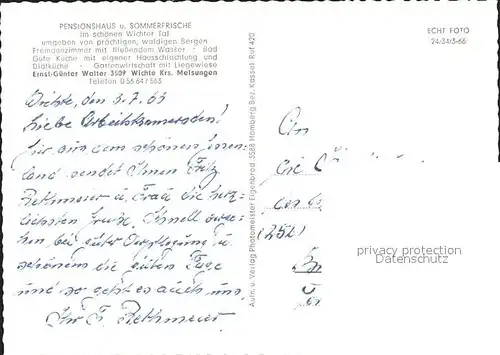 PENSIONSHAUS u. SOMMERFRISCHE
im schönen Wichter Tal
umgeben von prächtigen, waldigen Bergen
Fremdenzimmer mit fließendem Wasser · Bad
Gute Küche mit eigener Hausschlachtung und
Diätküche · Gartenwirtschaft mit Liegewiese
Ernst-Günter Walter 3509 Wichte Krs. Melsungen
Telefon 0 56 64 / 563
Wichte, den 3.7.66
Liebe Arbeitskameraden!
Hier aus dem schönen
land sendet Ihnen Fritz
Rethmeier u. Frau die herz-
lichsten Grüße. Schnell
hen bei guter Verpflegung u.
schönem die guten Tage
und so geht es auch uns.
Ihr F. Rethmeier.
Aufn. u. Verlag Photomeister Eigenbrod 3588 Homberg Bez. Kassel Ruf 420
ECHT FOTO
24/34/3-66
An
die
privacy protection
Datenschutz